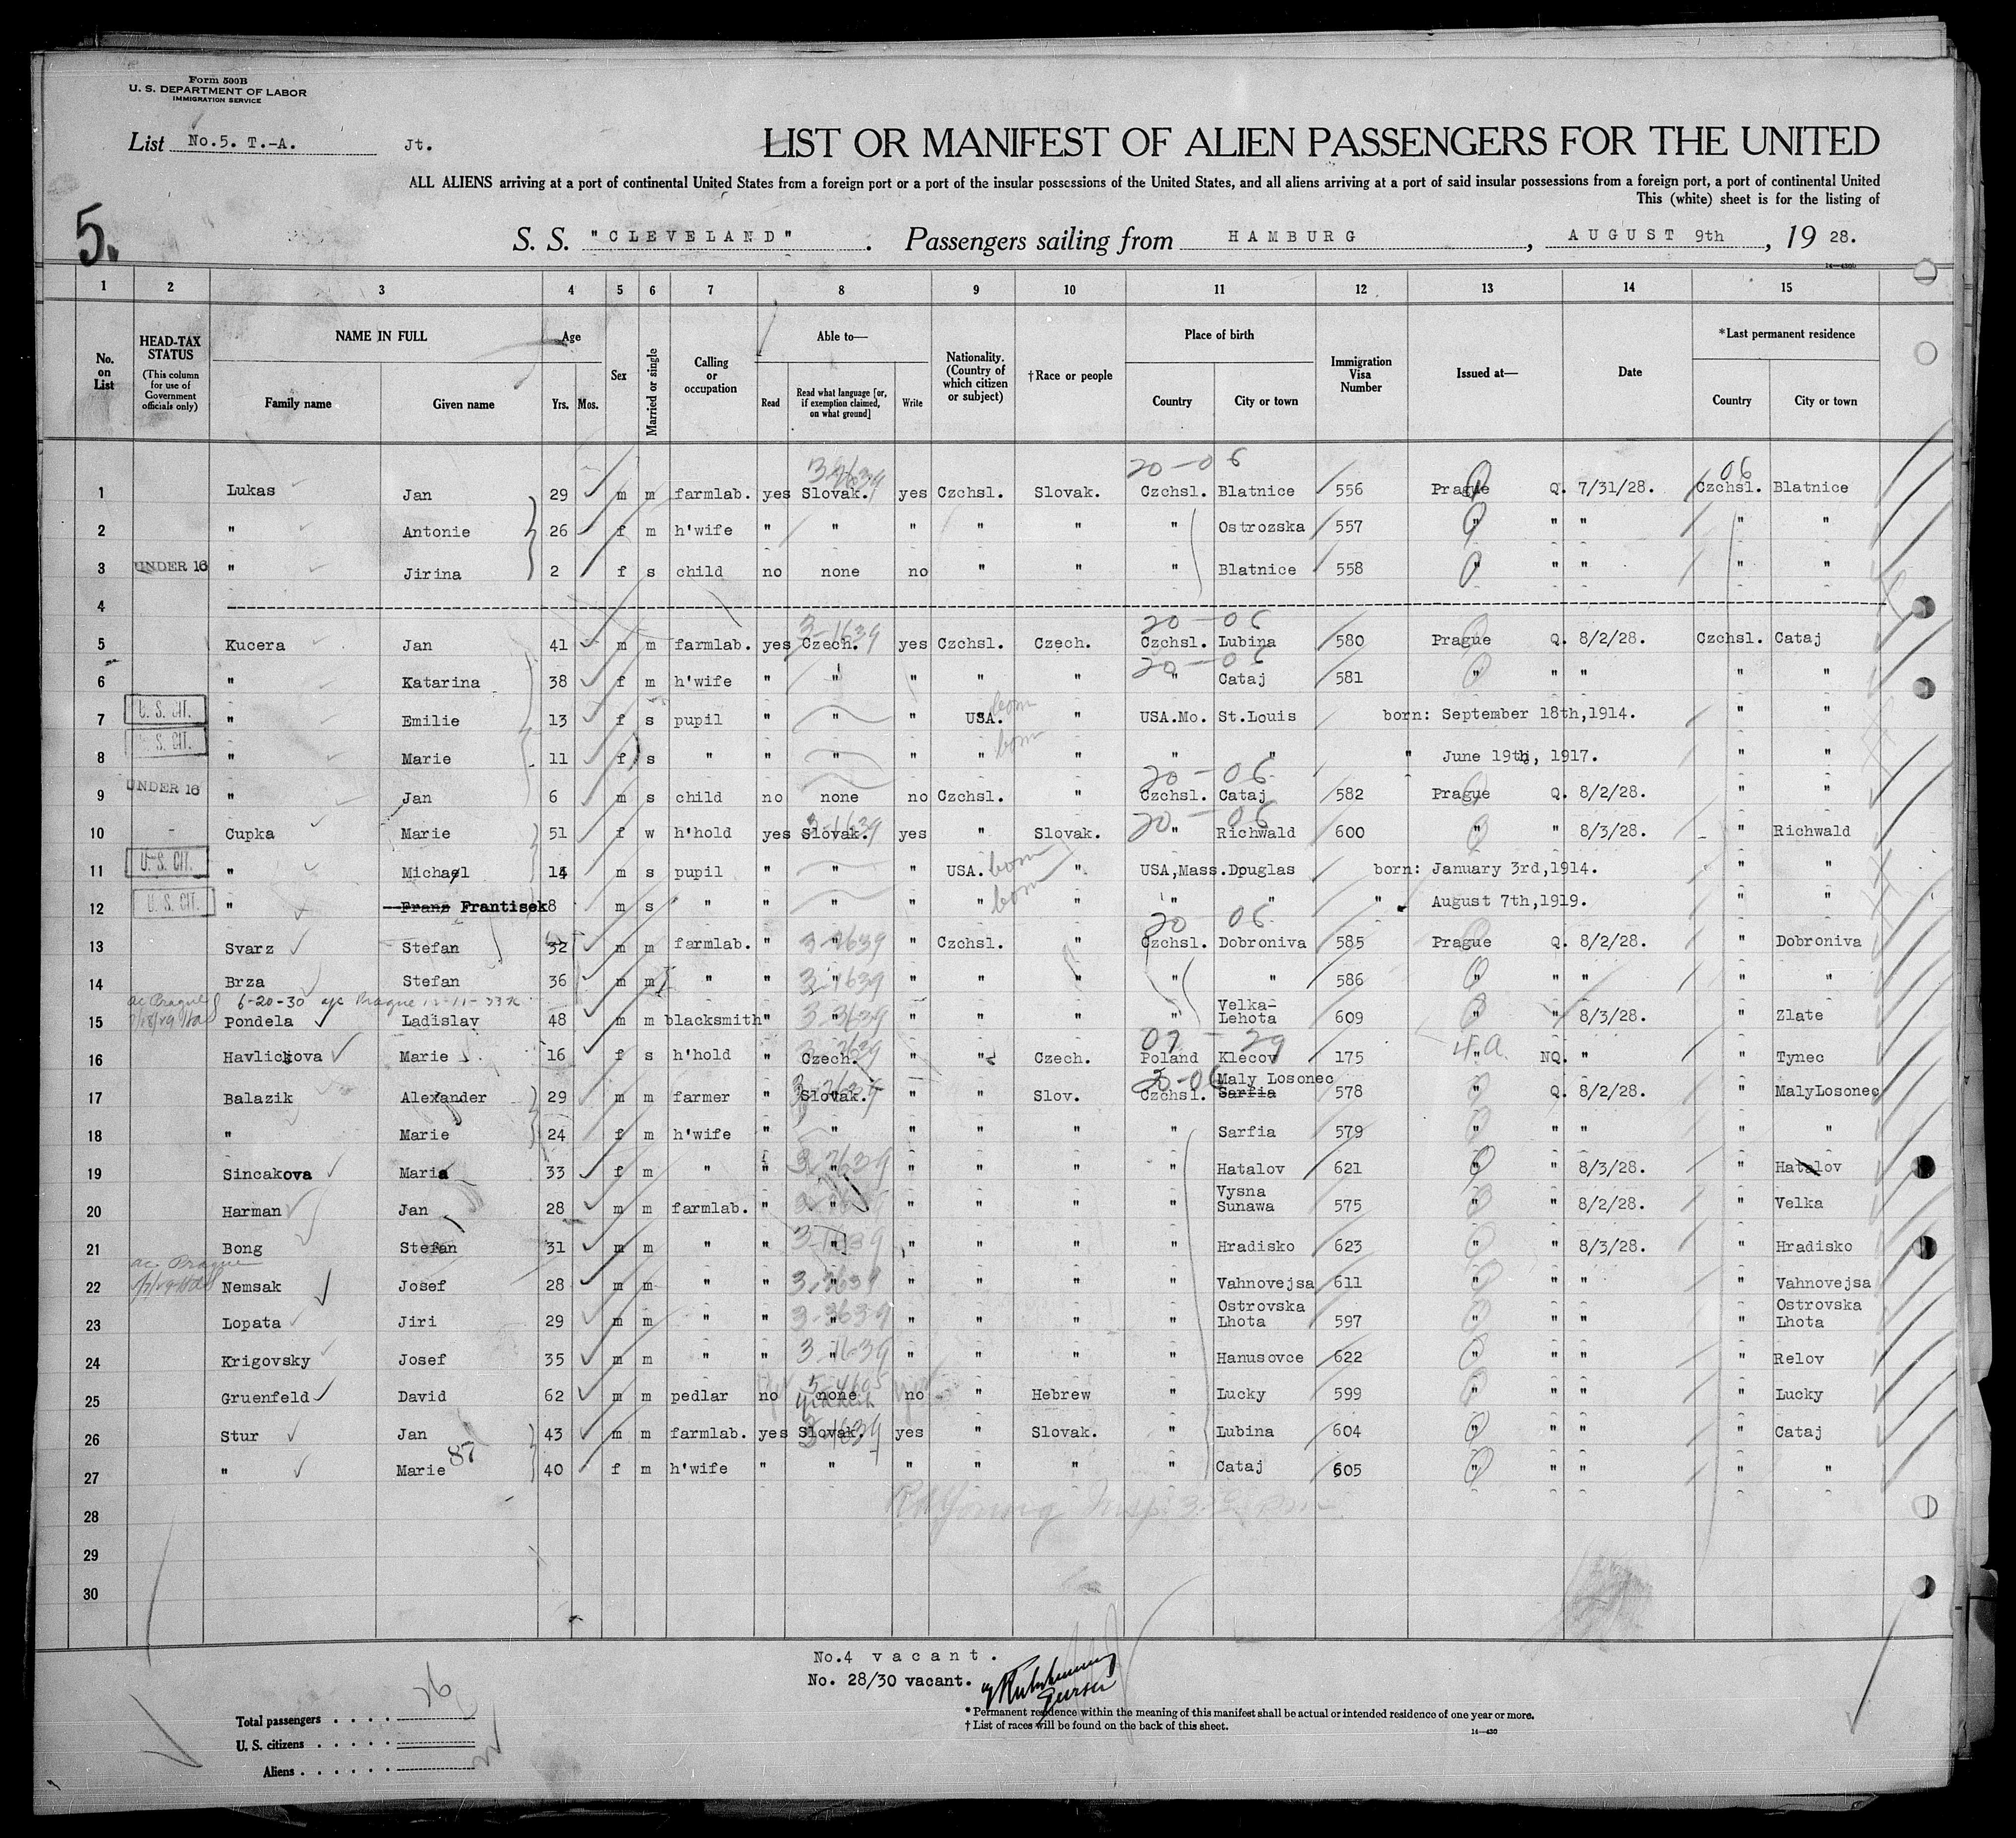 Form 500B
U. S. DEPARTMENT OF LABOR
IMMIGRATION SERVICE
List No.5. T.-A. Jt.
LIST OR MANIFEST OF ALIEN PASSENGERS FOR THE UNITED
ALL ALIENS arriving at a port of continental United States from a foreign port or a port of the insular possessions of the United States, and all aliens arriving at a port of said insular possessions from a foreign port, a port of continental United
This (white) sheet is for the listing of
5.
S. S. "CLEVELAND". Passengers sailing from HAMBURG, AUGUST 9th, 19 28.
14—430b
1 2 3 4 5 6 7 8 9 10 11 12 13 14 15
No. on List
HEAD-TAX STATUS (This column for use of Government officials only)
NAME IN FULL
Family name Given name
Age Yrs. Mos.
Sex
Married or single
Calling or occupation
Able to—
Read Read what language [or, if exemption claimed, on what ground] Write
Nationality. (Country of which citizen or subject)
†Race or people
Place of birth
Country City or town
Immigration Visa Number
Issued at—
Date
*Last permanent residence
Country City or town
20-06 06
1 Lukas Jan 29 m m farmlab. yes Slovak. yes Czchsl. Slovak. Czchsl. Blatnice 556 Prague Q. 7/31/28. Czchsl. Blatnice
2 " Antonie 26 f m h'wife " " " " " " Ostrozska 557 " " " " "
3 UNDER 16 " Jirina 2 f s child no none no " " " Blatnice 558 " " " " "
4
20-06
5 Kucera Jan 41 m m farmlab. yes Czech. yes Czchsl. Czech. Czchsl. Lubina 580 Prague Q. 8/2/28. Czchsl. Cataj
20-06
6 " Katarina 38 f m h'wife " " " " " " Cataj 581 " " " " "
7 U. S. CIT. " Emilie 13 f s pupil " " " USA. born " USA.Mo. St.Louis born: September 18th,1914. " "
8 U. S. CIT. " Marie 11 f s " " " " " born " " " " June 19th, 1917. " "
20-06
9 UNDER 16 " Jan 6 m s child no none no Czchsl. " Czchsl. Cataj 582 Prague Q. 8/2/28. " "
20-06
10 Cupka Marie 51 f w h'hold yes Slovak. yes " Slovak. " Richwald 600 " " 8/3/28. " Richwald
11 U. S. CIT. " Michael 14 m s pupil " " " USA. born " USA,Mass. Douglas born: January 3rd,1914. " "
12 U. S. CIT. " Franz Frantisek 8 m s " " " " " born " " " " August 7th,1919. " "
20 06
13 Svarz Stefan 32 m m farmlab. " " " Czchsl. " Czchsl. Dobroniva 585 Prague Q. 8/2/28. " Dobroniva
14 Brza Stefan 36 m m " " " " " " " " 586 " " " " "
6-20-30
15 Pondela Ladislav 48 m m blacksmith " " " " " " Velka- Lehota 609 " " 8/3/28. " Zlate
07-29
16 Havlickova Marie 16 f s h'hold " Czech. " " Czech. Poland Klecov 175 " NQ. " " Tynec
20-06
17 Balazik Alexander 29 m m farmer " Slovak. " " Slov. Czchsl. Maly Losonec Sarfia 578 " Q. 8/2/28. " MalyLosonec
18 " Marie 24 f m h'wife " " " " " " Sarfia 579 " " " " "
19 Sincakova Maria 33 f m " " " " " " " Hatalov 621 " " 8/3/28. " Hatalov
20 Harman Jan 28 m m farmlab. " " " " " " Vysna Sunawa 575 " " 8/2/28. " Velka
21 Bong Stefan 31 m m " " " " " " " Hradisko 623 " " 8/3/28. " Hradisko
22 Nemsak Josef 28 m m " " " " " " " Vahnovejsa 611 " " " " Vahnovejsa
23 Lopata Jiri 29 m m " " " " " " " Ostrovska Lhota 597 " " " " Ostrovska Lhota
24 Krigovsky Josef 35 m m " " " " " " " Hanusovce 622 " " " " Relov
25 Gruenfeld David 62 m m pedlar no none no " Hebrew " Lucky 599 " " " " Lucky
26 Stur Jan 43 m m farmlab. yes Slovak. yes " Slovak. " Lubina 604 " " " " Cataj
87
27 " Marie 40 f m h'wife " " " " " " Cataj 605 " " " " "
28
29
30
No.4 vacant.
No. 28/30 vacant.
* Permanent residence within the meaning of this manifest shall be actual or intended residence of one year or more.
† List of races will be found on the back of this sheet.
14—430
Total passengers . . . . 26
U. S. citizens . . . . .
Aliens . . . . . .